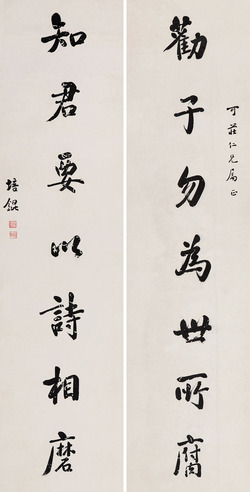 可莊仁兄屬正
勸子勿為世所腐
知君要以詩相磨
培錕